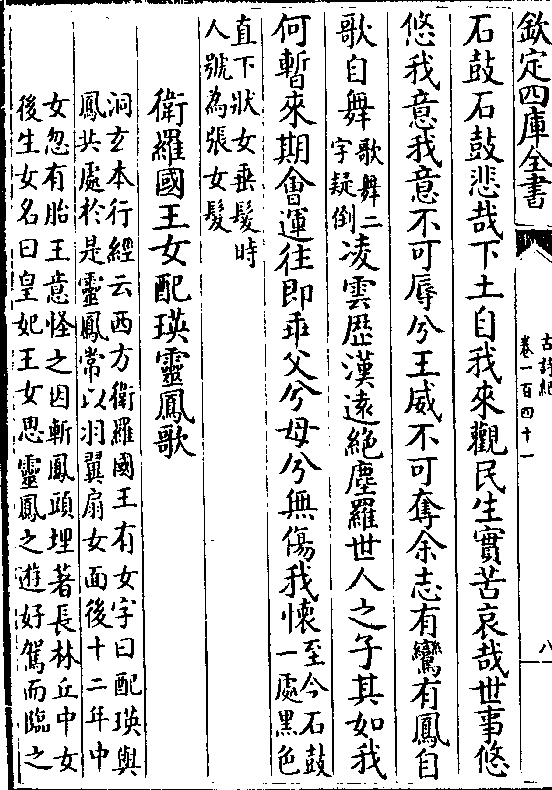 欽定四庫全書
古詩紀
卷一百四十一
八
石鼓石鼓悲哉下土自我來觀民生實苦哀哉世事悠
悠我意我意不可辱兮王威不可奪余志有鸞有鳳自
歌自舞歌舞二字疑倒凌雲歴漢逺絶塵羅世人之子其如我
何暫來期會運往即乖父兮母兮無傷我懷至今石鼓一處黑色
直下狀女垂髮時
人號為張女髮
衛羅國王女配瑛靈鳳歌
洞𤣥本行經云西方衛羅國王有女字曰配瑛與
鳳共處於是靈鳳常以羽翼扇女面後十二年中
女忽有胎王意怪之因斬鳳頭埋著長林丘中女
後生女名曰皇妃王女思靈鳳之遊好駕而臨之